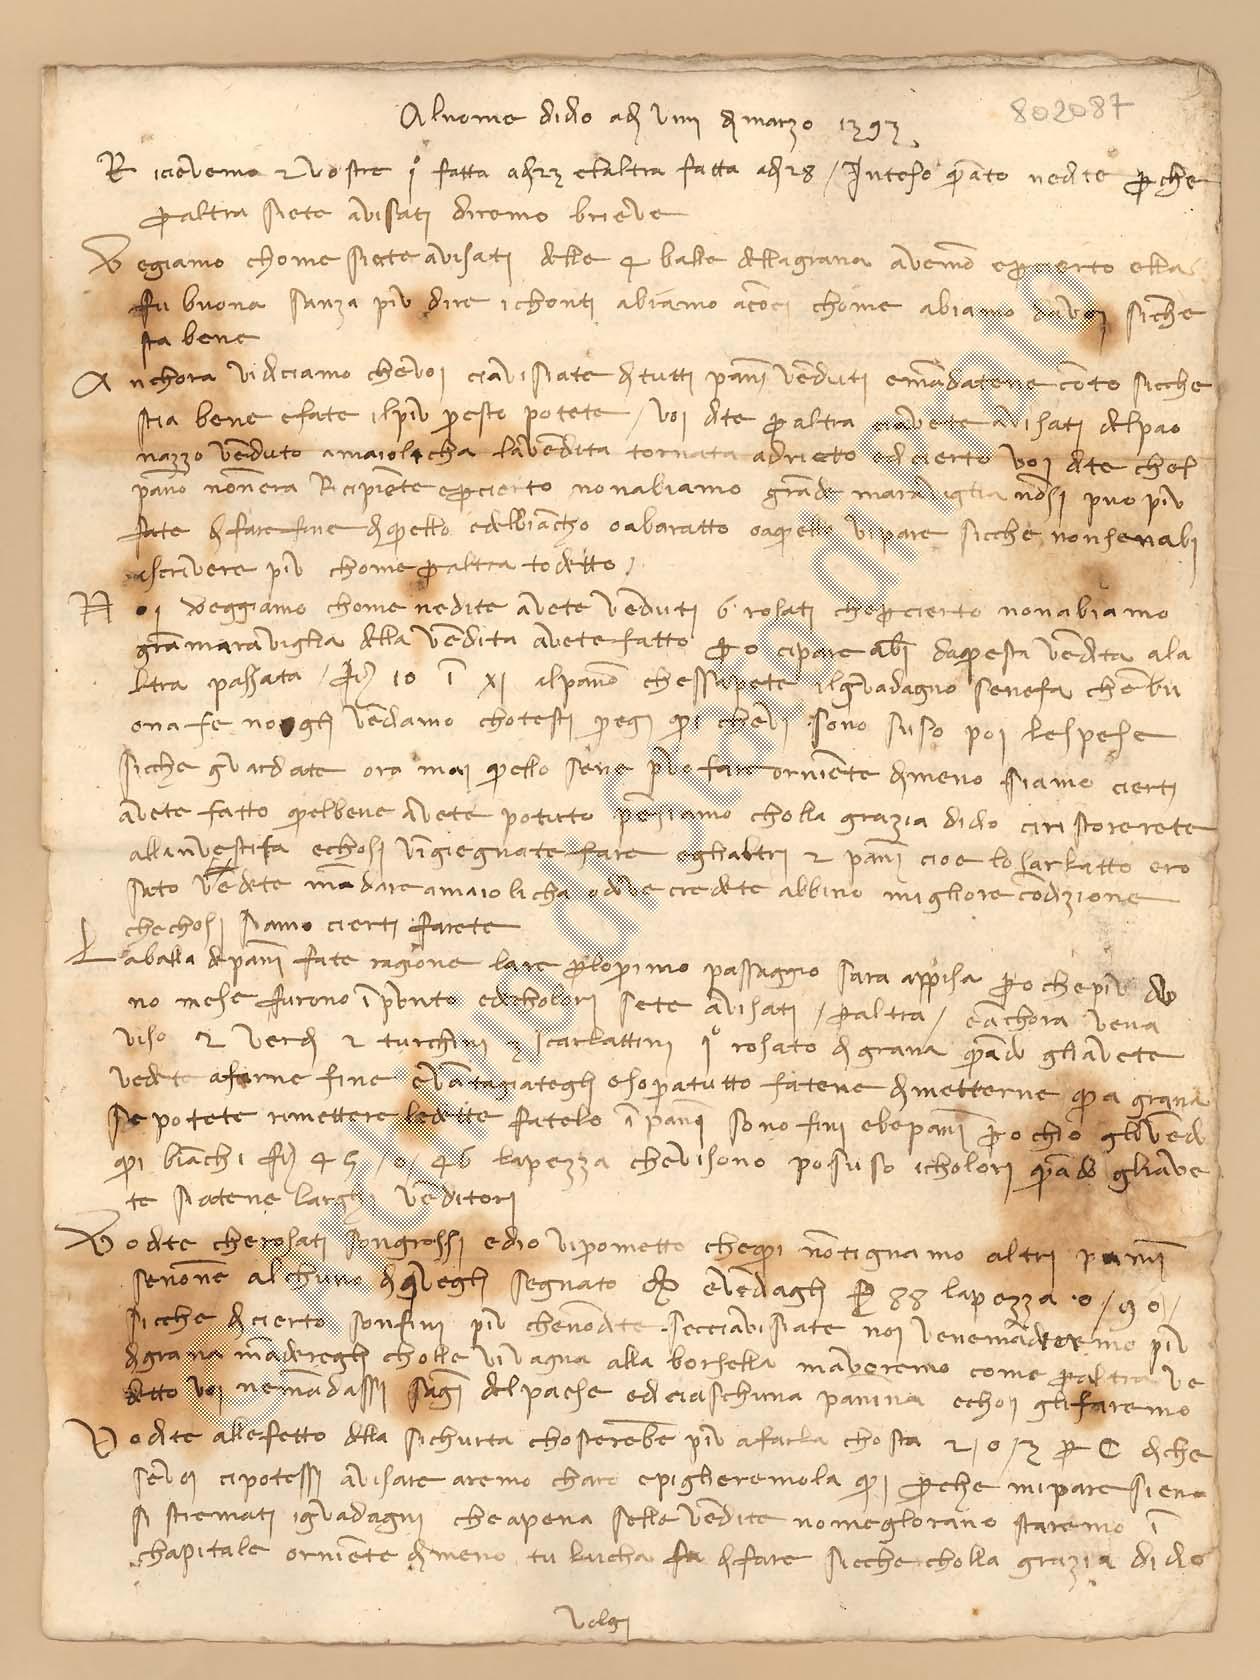 802087
Al nome di dio adi viiii di marzo 1393
Ricievemo 2 vostre i° fatta adi 23 e l altra fatta adi 28 / Inteso quanto nedite perche
per altra siete avisati diremo brieve
Vegiamo chome siete avisati delle 4 balle della grana avemo e per cierto ella
fu buona sanza piu dire i chonti abiamo acconci chome abiamo da voi siche
sta bene
Anchora vi diciamo che voi ci avisiate di tutti panni venduti e mandatene conto sicche
stia bene e fate il piu presto potete / voi dite per altra ci avete avisati del pao
nazzo venduto a maiolicha la vendita tornata adrieto ed cierto voi dite chel
panno non era Ricipiente e per cierto non abiamo grande maraviglia non si puo piu
fate di fare fine di quello e del biancho o a baratto o a quello vi pare sicche non se n abi
a scrivere piu chome per altra to detto /
Noi veggiamo chome nedite avete venduti 6 rosati che per cierto non abiamo
gran maraviglia della vendita avete fatto pero ci pare abi da questa vendita ala
ltra passata / fior 10 in xi al panno che ssapete il guadagno se ne fa che bu
ona fe no gli vendiamo chotesti pregi qui che vi sono suso poi le spese
sicche guardate ora mai quello sene puo fare orniente di meno siamo cierti
avete fatto quel bene avete potuto pensiamo cholla grazia di dio ci ristorerete
alla nvestita e chosi vingiegnate fare e gli altri 2 panni cioe lo scarlatto e ro
sato vedete mandare a maiolicha o dove credete abbino migliore condizione
che chosi siamo cierti farete
La balla de panni fate ragione lare per lo primo passaggio sara a pisa pero che piu du
no mese furono in punto e de cholori sete avisati / per altra / e anchora vena
viso 2 verdi 2 turchini 3 scarlattini i° rosato di grana quando gli avete
vedete a farne fine e vantagiategli e sopra tutto fatene di metterne qua grana
se potete rimettere le dette fatelo i panni sono fini e be panni pero chio gli vendo
qui bianchi fior 45 / o / 46 la pezza che vi sono po suso i cholori quando gli ave
te siatene larghi venditori
Vo dite che rosati son grossi ed io vi prometto che qui non tignamo altri panni
se none alchuno di quegli segnato e vendagli fior 88 la pezza o / 90 /
sicche di cierto son fini piu che non dite se cci avisiate noi vene manderemo piu
di grana manderegli cholle vi vagna alla borsella ma veremo come per altra ve
detto voi ne mandassi saggi del paese e di ciaschuna panina e choi gli faremo
Vo dite all efetto della sichurta chosterebe piu a farla chosta 2 / o / 3 per C di che
se voi ci potessi avisare aremo charo e piglieremola qui perche mi pare sieno
si stremati i guadagni che apena selle vendite no megliorano staremo in
chapitale orniente di meno tu lucha fa di fare sicche cholla grazia di dio
volgi
© Archivio di Stato di Prato